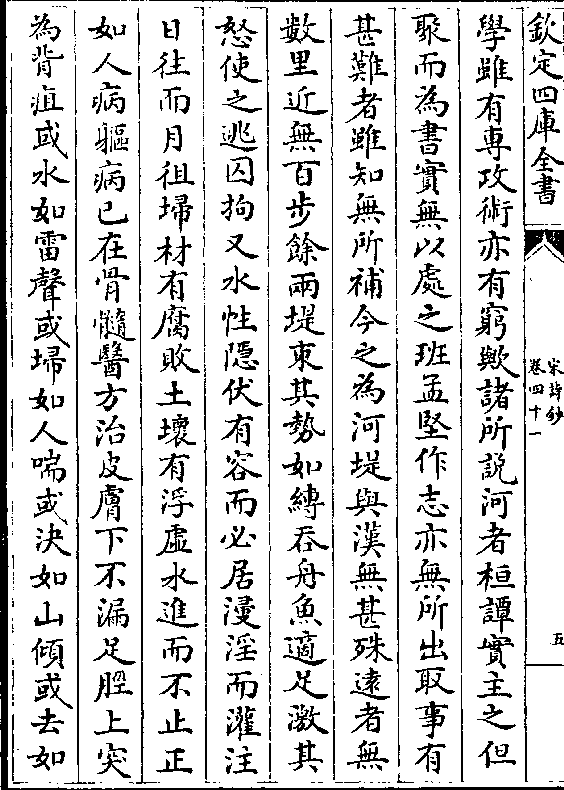 欽定四庫全書
宋詩鈔
卷四十一
五
學雖有專攻術亦有窮歟諸所説河者桓譚實主之但
聚而為書實無以處之班孟堅作志亦無所出取事有
甚難者雖知無所補今之為河堤與漢無甚殊逺者無
數里近無百步餘兩堤束其勢如縛吞舟魚適足激其
怒使之逃囚拘又水性隱伏有容而必居漫淫而灌注
日往而月徂埽材有腐敗土壤有浮虚水進而不止正
如人病軀病已在骨髓醫方治皮膚下不漏足脛上突
為背疽或水如雷聲或埽如人喘或決如山傾或去如